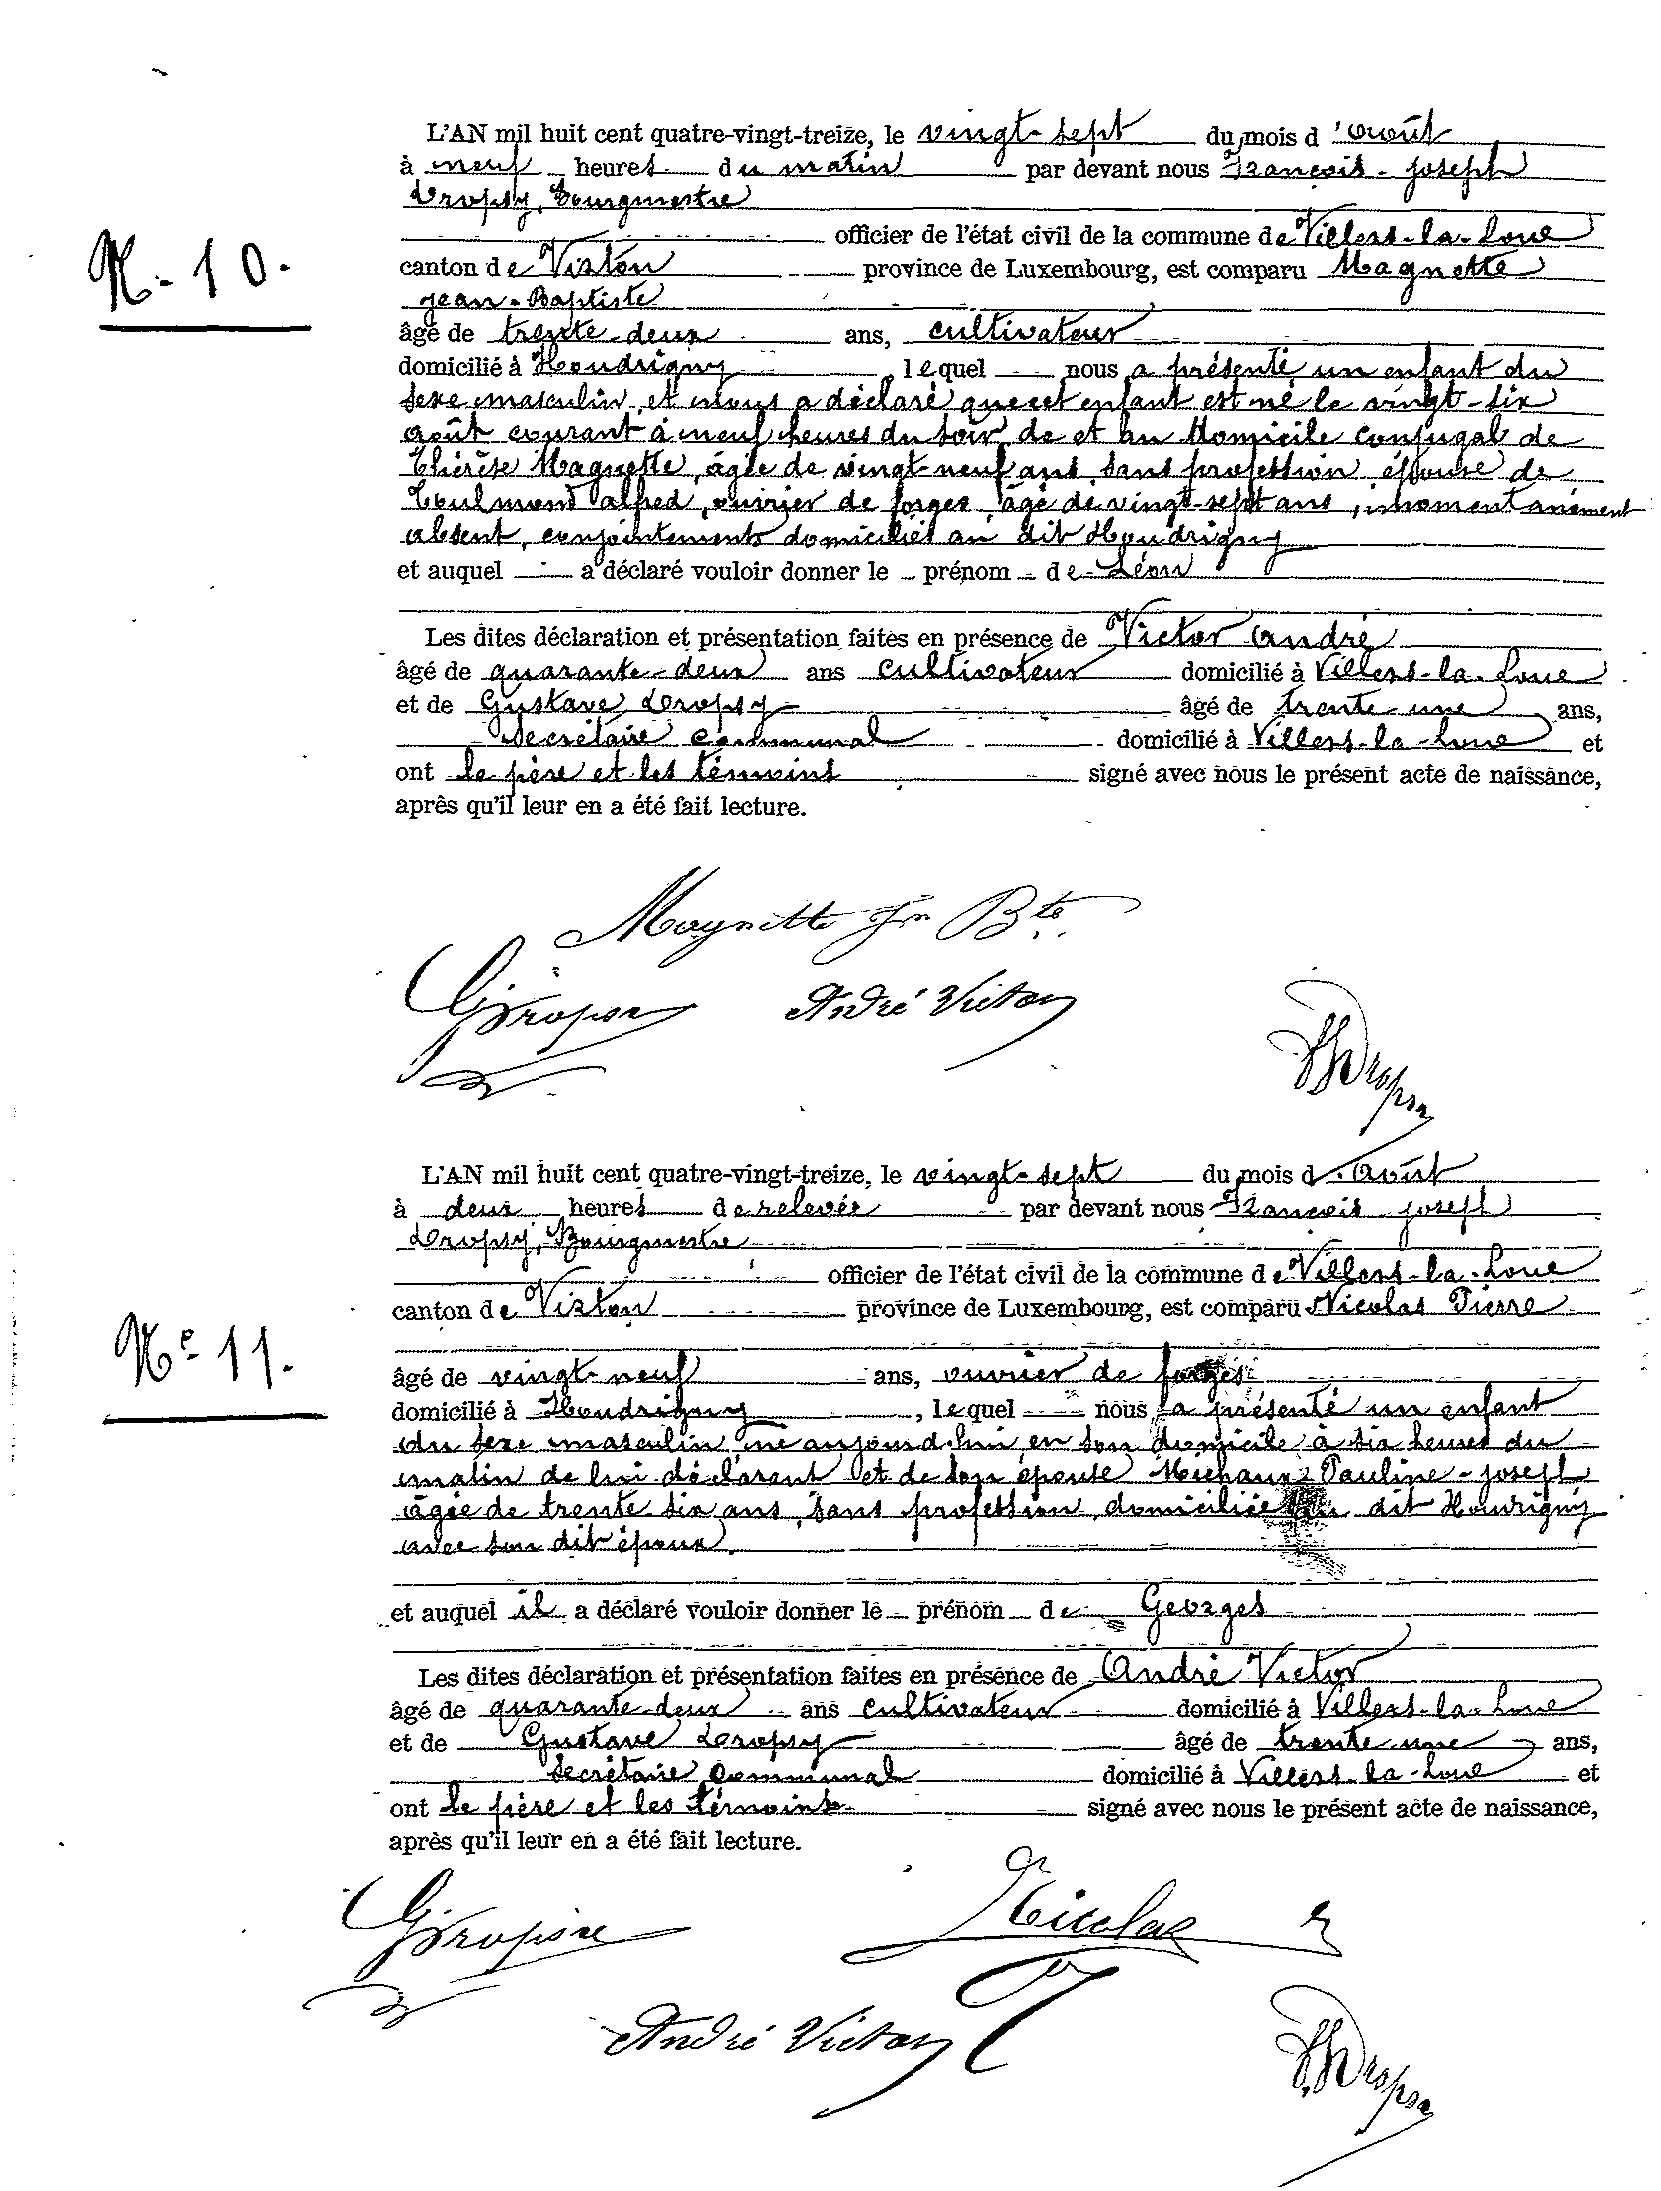 L'AN mil huit cent quatre-vingt-treize, le vingt-sept du mois d'août
à neuf heures du matin par devant nous François-joseph
Dropsy, Bourgmestre
officier de l'état civil de la commune de Villers-la-Loue
N. 10.
canton de Virton province de Luxembourg, est comparu Magnette
jean-Baptiste
âgé de trente-deux ans, cultivateur
domicilié à Houdrigny, lequel nous a présenté un enfant du
sexe masculin, et nous a déclaré que cet enfant est né le vingt-six
août courant à neuf heures du soir, de et au domicile conjugal de
Thérèse Magnette, âgée de vingt-neuf ans, sans profession, épouse de
Toulmond alfred, ouvrier de forges, âgé de vingt-sept ans, momentanément
absent, conjointements domiciliés au dit Houdrigny
et auquel a déclaré vouloir donner le prénom de Léon
Les dites déclaration et présentation faites en présence de Victor andré
âgé de quarante-deux ans cultivateur domicilié à Villers-la-Loue
et de Gustave Dropsy âgé de trente-une ans,
Secrétaire communal domicilié à Villers-la-Loue et
ont le père et les témoins signé avec nous le présent acte de naissance,
après qu'il leur en a été fait lecture.
Magnette Jn Bte
GDropsy André Victor
FJDropsy
L'AN mil huit cent quatre-vingt-treize, le vingt-sept du mois d'Août
à deux heures de relevée par devant nous François joseph
Dropsy, Bourgmestre
officier de l'état civil de la commune de Villers-la-Loue
canton de Virton province de Luxembourg, est comparu Nicolas Pierre
No 11.
âgé de vingt-neuf ans, ouvrier de forges
domicilié à Houdrigny, lequel nous a présenté un enfant
du sexe masculin, né aujourd'hui en son domicile à six heures du
matin de lui déclarant et de son épouse Michaux Pauline-joseph
âgée de trente-six ans, sans profession, domiciliée au dit Hourigny
avec son dit époux.
et auquel il a déclaré vouloir donner le prénom de Georges
Les dites déclaration et présentation faites en présence de André Victor
âgé de quarante-deux ans cultivateur domicilié à Villers-la-Loue
et de Gustave Dropsy âgé de trente-une ans,
Secrétaire communal domicilié à Villers-la-Loue et
ont le père et les témoins signé avec nous le présent acte de naissance,
après qu'il leur en a été fait lecture.
GDropsy Nicolas
André Victor
FJDropsy